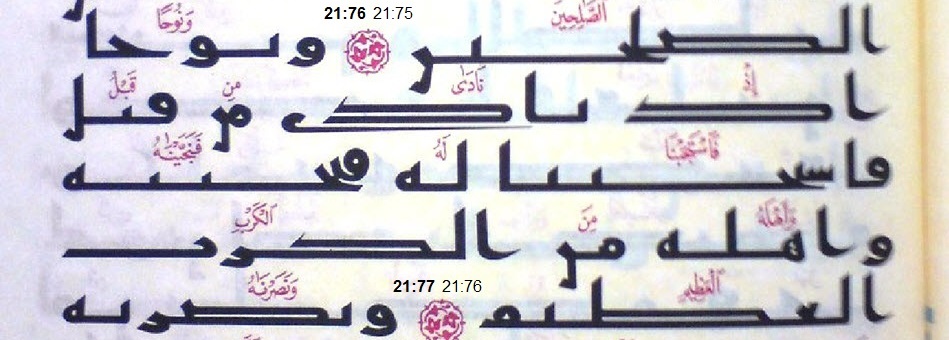 21:76 21:75
ٱلصَّٰلِحِينَ وَنُوحًا
الصلحين ونوحا
إِذْ نَادَىٰ مِن قَبْلُ
اذ نادى من قبل
فَٱسْتَجَبْنَا لَهُۥ فَنَجَّيْنَٰهُ
فاستجبنا له فنجينه
وَأَهْلَهُۥ مِنَ ٱلْكَرْبِ
واهله من الكرب
21:77 21:76
ٱلْعَظِيمِ وَنَصَرْنَٰهُ
العظيم ونصرنه